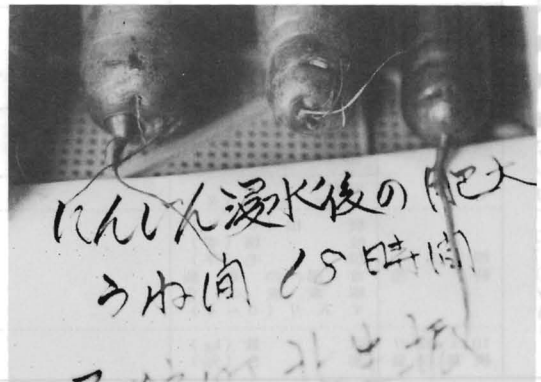 にんじん浸水後の肥大
うね間 18時間